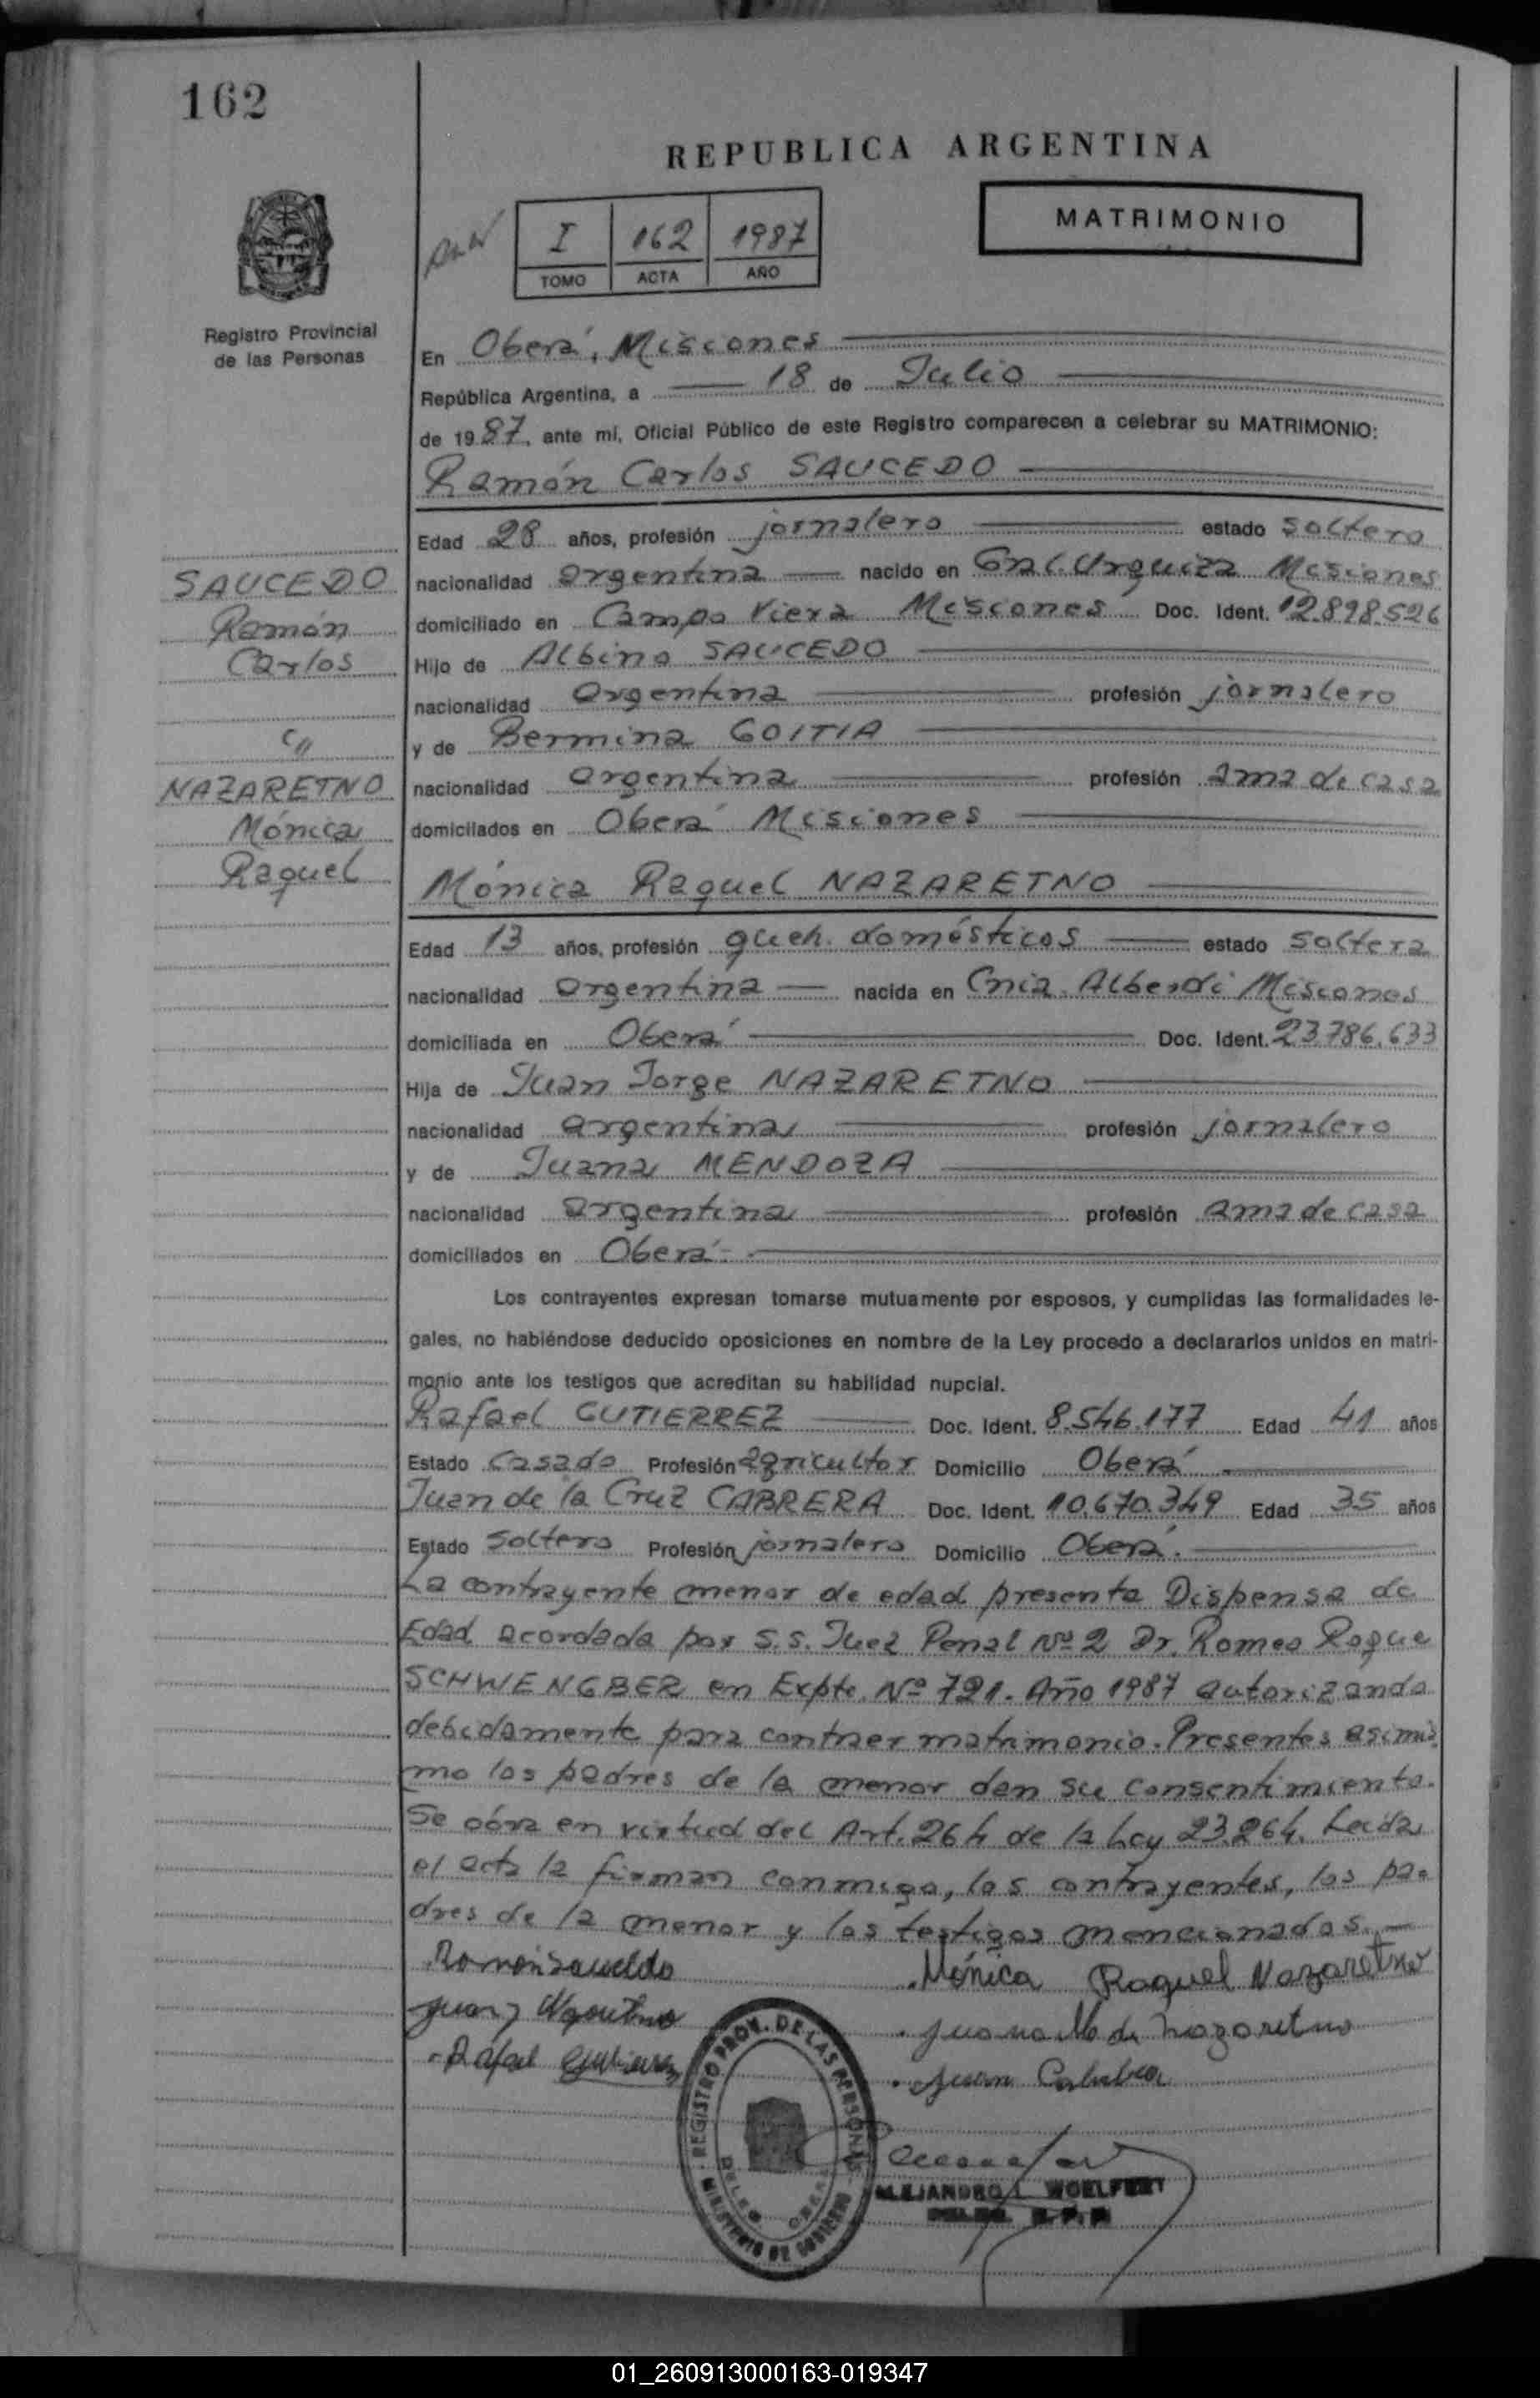 162
REPUBLICA ARGENTINA
MATRIMONIO
I 162 1987
TOMO ACTA AÑO
Registro Provincial
de las Personas
En Oberá, Misiones
República Argentina, a 18 de Julio
de 1987, ante mí, Oficial Público de este Registro comparecen a celebrar su MATRIMONIO:
Ramón Carlos SAUCEDO
Edad 28 años, profesión jornalero estado soltero
SAUCEDO
Ramón
Carlos
c//
NAZARETNO
Mónica
Raquel
nacionalidad argentina nacido en Gral. Urquiza Misiones
domiciliado en Campo Viera Misiones Doc. Ident. 12.898.526
Hijo de Albino SAUCEDO
nacionalidad argentina profesión jornalero
y de Bermina GOITIA
nacionalidad argentina profesión ama de casa
domiciliados en Oberá Misiones
Mónica Raquel NAZARETNO
Edad 13 años, profesión queh. domésticos estado soltera
nacionalidad argentina nacida en Cnia. Alberdi Misiones
domiciliada en Oberá Doc. Ident. 23.786.633
Hija de Juan Jorge NAZARETNO
nacionalidad argentina profesión jornalero
y de Juana MENDOZA
nacionalidad argentina profesión ama de casa
domiciliados en Oberá.
Los contrayentes expresan tomarse mutuamente por esposos, y cumplidas las formalidades le-
gales, no habiéndose deducido oposiciones en nombre de la Ley procedo a declararlos unidos en matri-
monio ante los testigos que acreditan su habilidad nupcial.
Rafael GUTIERREZ Doc. Ident. 8.546.177 Edad 41 años
Estado casado Profesión agricultor Domicilio Oberá
Juan de la Cruz CABRERA Doc. Ident. 10.670.349 Edad 35 años
Estado soltero Profesión jornalero Domicilio Oberá.
La contrayente menor de edad presenta Dispensa de
Edad acordada por S.S. Juez Penal Nº 2 Dr. Romeo Roque
SCHWENGBER en Expte. Nº 721. Año 1987 autorizando
debidamente para contraer matrimonio. Presentes asimis
mo los padres de la menor dan su consentimiento.
Se obra en virtud del Art. 264 de la Ley 23.264. Leída
el acta la firman conmigo, los contrayentes, los pa-
dres de la menor y los testigos mencionados.-
Ramón Saucedo Mónica Raquel Nazaretno
Juan J Juana M de Nazaretno
Rafael Gutierrez Juan
REGISTRO PROV. DE LAS PERSONAS
MINISTERIO DE GOBIERNO
ALEJANDRO WOELFERT
01_260913000163-019347